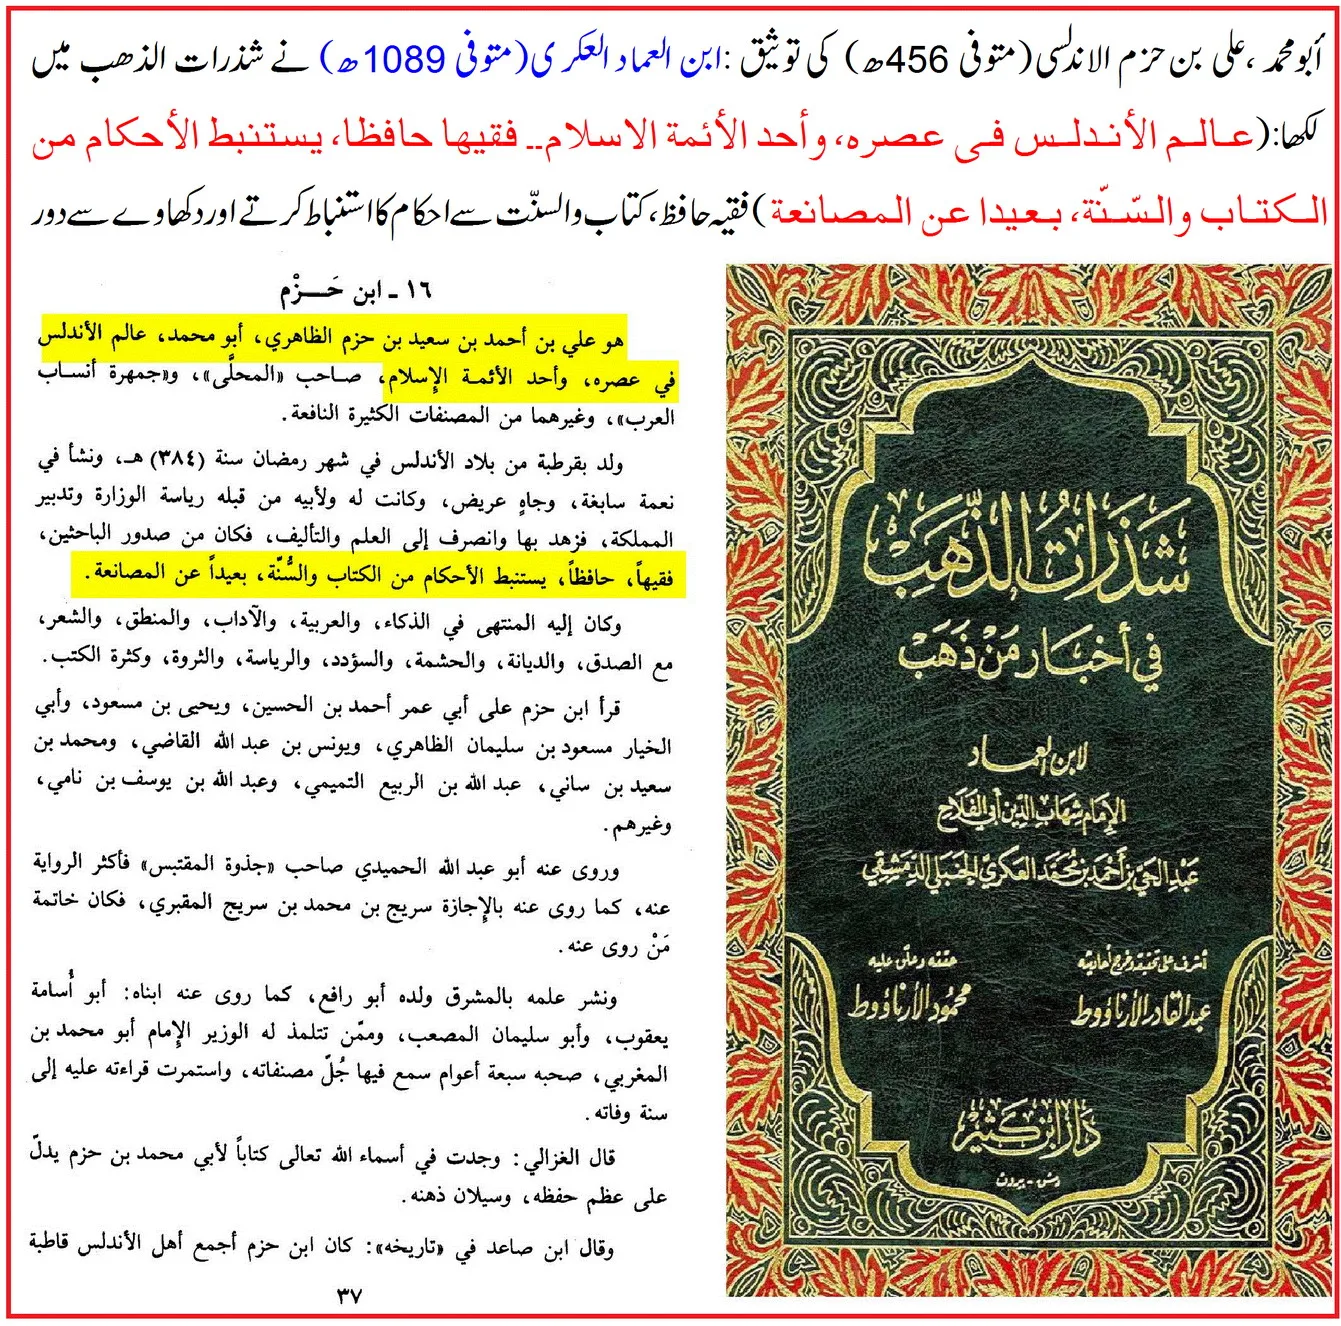 أبو محمد، علی بن حزم الاندلسی (متوفی 456ھ) کی توثیق: ابن العماد العکری (متوفی 1089ھ) نے شذرات الذھب میں
لکھا: (عالم الأندلس فی عصرہ، وأحد الأئمة الاسلام۔۔ فقیها حافظا، یستنبط الأحکام من
الکتاب والسّنّة، بعیدا عن المصانعة) فقیہ حافظ، کتاب والسنّت سے احکام کا استنباط کرتے اور دکھاوے سے دور
١٦ ـ ابن حَـزْم
هو علي بن أحمد بن سعيد بن حزم الظاهري، أبو محمد، عالم الأندلس
في عصره، وأحد الأئمة الإسلام، صاحب «المحلَّى»، و«جمهرة أنساب
العرب»، وغيرهما من المصنفات الكثيرة النافعة.
ولد بقرطبة من بلاد الأندلس في شهر رمضان سنة (٣٨٤) هـ، ونشأ في
نعمة سابغة، وجاهٍ عريض، وكانت له ولأبيه من قبله رياسة الوزارة وتدبير
المملكة، فزهد بها وانصرف إلى العلم والتأليف، فكان من صدور الباحثين،
فقيهاً، حافظاً، يستنبط الأحكام من الكتاب والسُّنّة، بعيداً عن المصانعة.
وكان إليه المنتهى في الذكاء، والعربية، والآداب، والمنطق، والشعر،
مع الصدق، والديانة، والحشمة، والسؤدد، والرياسة، والثروة، وكثرة الكتب.
قرأ ابن حزم على أبي عمر أحمد بن الحسين، ويحيى بن مسعود، وأبي
الخيار مسعود بن سليمان الظاهري، ويونس بن عبد الله القاضي، ومحمد بن
سعيد بن ساني، عبد الله بن الربيع التميمي، وعبد الله بن يوسف بن نامي،
وغيرهم.
وروى عنه أبو عبد الله الحميدي صاحب «جذوة المقتبس» فأكثر الرواية
عنه، كما روى عنه بالإجازة سريج بن محمد بن سريج المقبري، فكان خاتمة
مَنْ روى عنه.
ونشر علمه بالمشرق ولده أبو رافع، كما روى عنه ابناه: أبو أُسامة
يعقوب، وأبو سليمان المصعب، وممّن تتلمذ له الوزير الإمام أبو محمد بن
المغربي، صحبه سبعة أعوام سمع فيها جُلّ مصنفاته، واستمرت قراءته عليه إلى
سنة وفاته.
قال الغزالي: وجدت في أسماء الله تعالى كتاباً لأبي محمد بن حزم يدلّ
على عظم حفظه، وسيلان ذهنه.
وقال ابن صاعد في «تاريخه»: كان ابن حزم أجمع أهل الأندلس قاطبة
٣٧
شَذَرَاتُ الذَّهَبْ
في أخبار مَنْ ذَهَبْ
لابن العماد
الإمام شهاب الدين أبي الفلاح
عبد الحي بن أحمد بن محمد العكري الحنبلي الدمشقي
أشرف على تحقيقه وخرج أحاديثه
عبد القادر الأرناؤوط
حققه وعلق عليه
محمود الأرناؤوط
دار ابن كثير
دمشق - بيروت